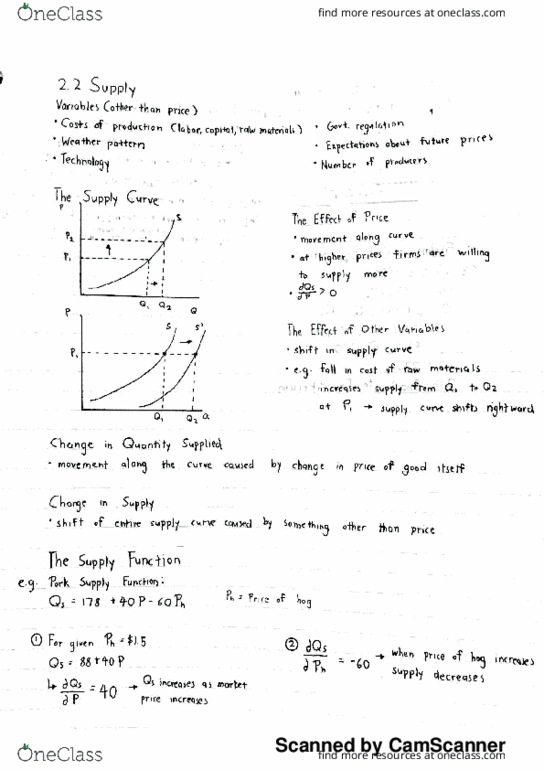 OneClass
find more resources at oneclass.com
2.2 Supply
Variables (other than price)
• Costs of production (labor, capital, raw materials)
• Weather pattern
• Technology
• Govt. regulation
• Expectations about future prices
• Number of producers
The Supply Curve
P
P2
P1
S
Q1 Q2 Q
The Effect of Price
• movement along curve
• at higher prices firms are willing
to supply more
• ∂Qs/∂P > 0
P
P1
S S'
Q1 Q2 Q
The Effect of Other Variables
• shift in supply curve
• e.g. fall in cost of raw materials
increases supply from Q1 to Q2
at P1 → supply curve shifts rightward
Change in Quantity Supplied
• movement along the curve caused by change in price of good itself
Change in Supply
• shift of entire supply curve caused by something other than price
The Supply Function
e.g. Pork Supply Function:
Qs = 178 + 40P - 60Ph
Ph = Price of hog
① For given Ph = $1.5
Qs = 88 + 40P
↳ ∂Qs/∂P = 40 → Qs increases as market
price increases
② ∂Qs/∂Ph = -60 → when price of hog increases
supply decreases
Scanned by CamScanner
OneClass
find more resources at oneclass.com